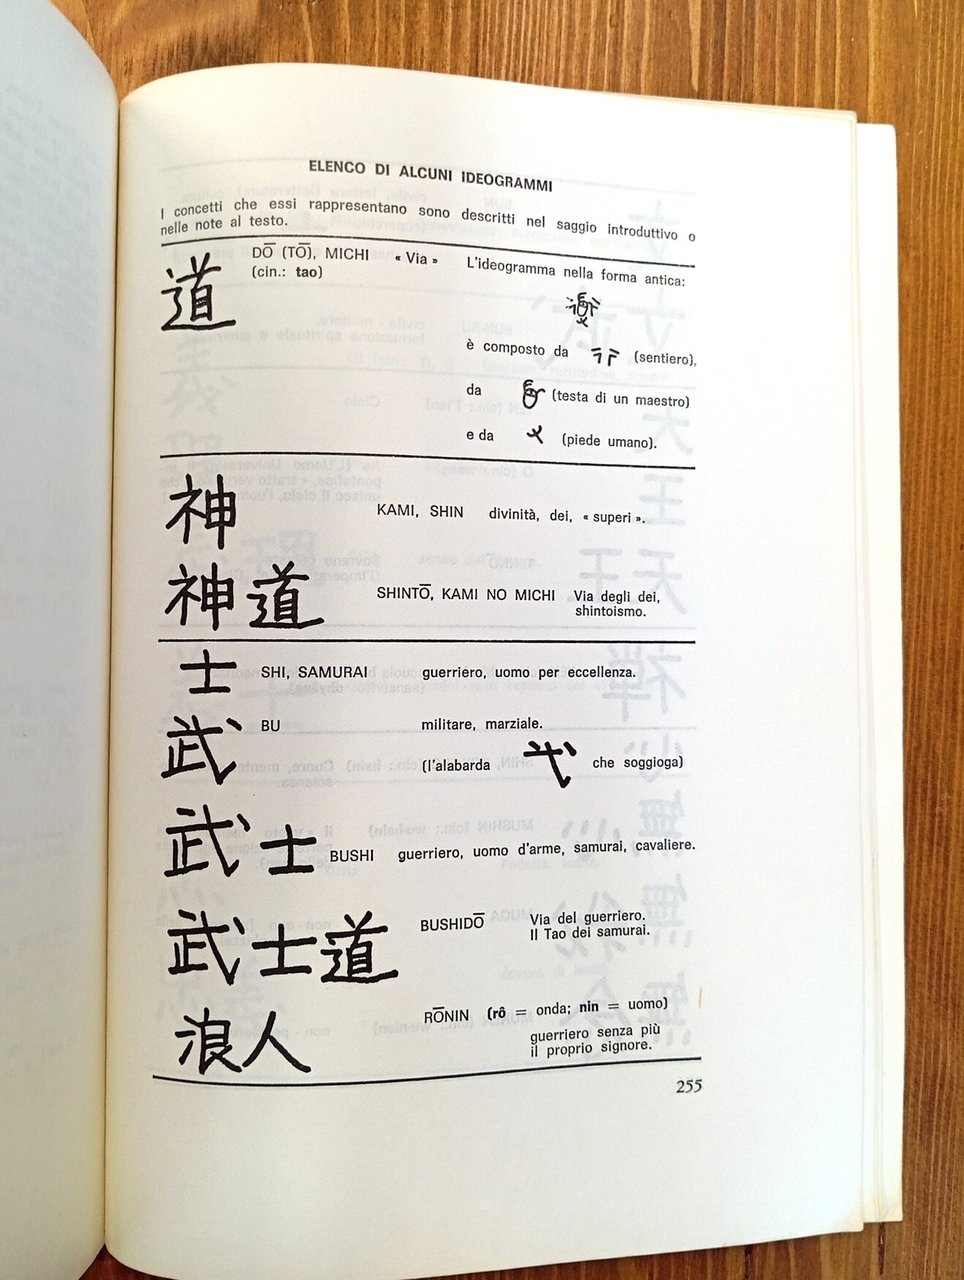 ELENCO DI ALCUNI IDEOGRAMMI
I concetti che essi rappresentano sono descritti nel saggio introduttivo o
nelle note al testo.
道 DŌ (TŌ), MICHI « Via »
(cin.: tao)
L'ideogramma nella forma antica:
è composto da (sentiero),
da (testa di un maestro)
e da (piede umano).
神 KAMI, SHIN divinità, dei, « superi ».
神道 SHINTŌ, KAMI NO MICHI Via degli dei,
shintoismo.
士 SHI, SAMURAI guerriero, uomo per eccellenza.
武 BU militare, marziale.
(l'alabarda che soggioga)
武士 BUSHI guerriero, uomo d'arme, samurai, cavaliere.
武士道 BUSHIDŌ Via del guerriero.
Il Tao dei samurai.
浪人 RŌNIN (rô = onda; nin = uomo)
guerriero senza più
il proprio signore.
255